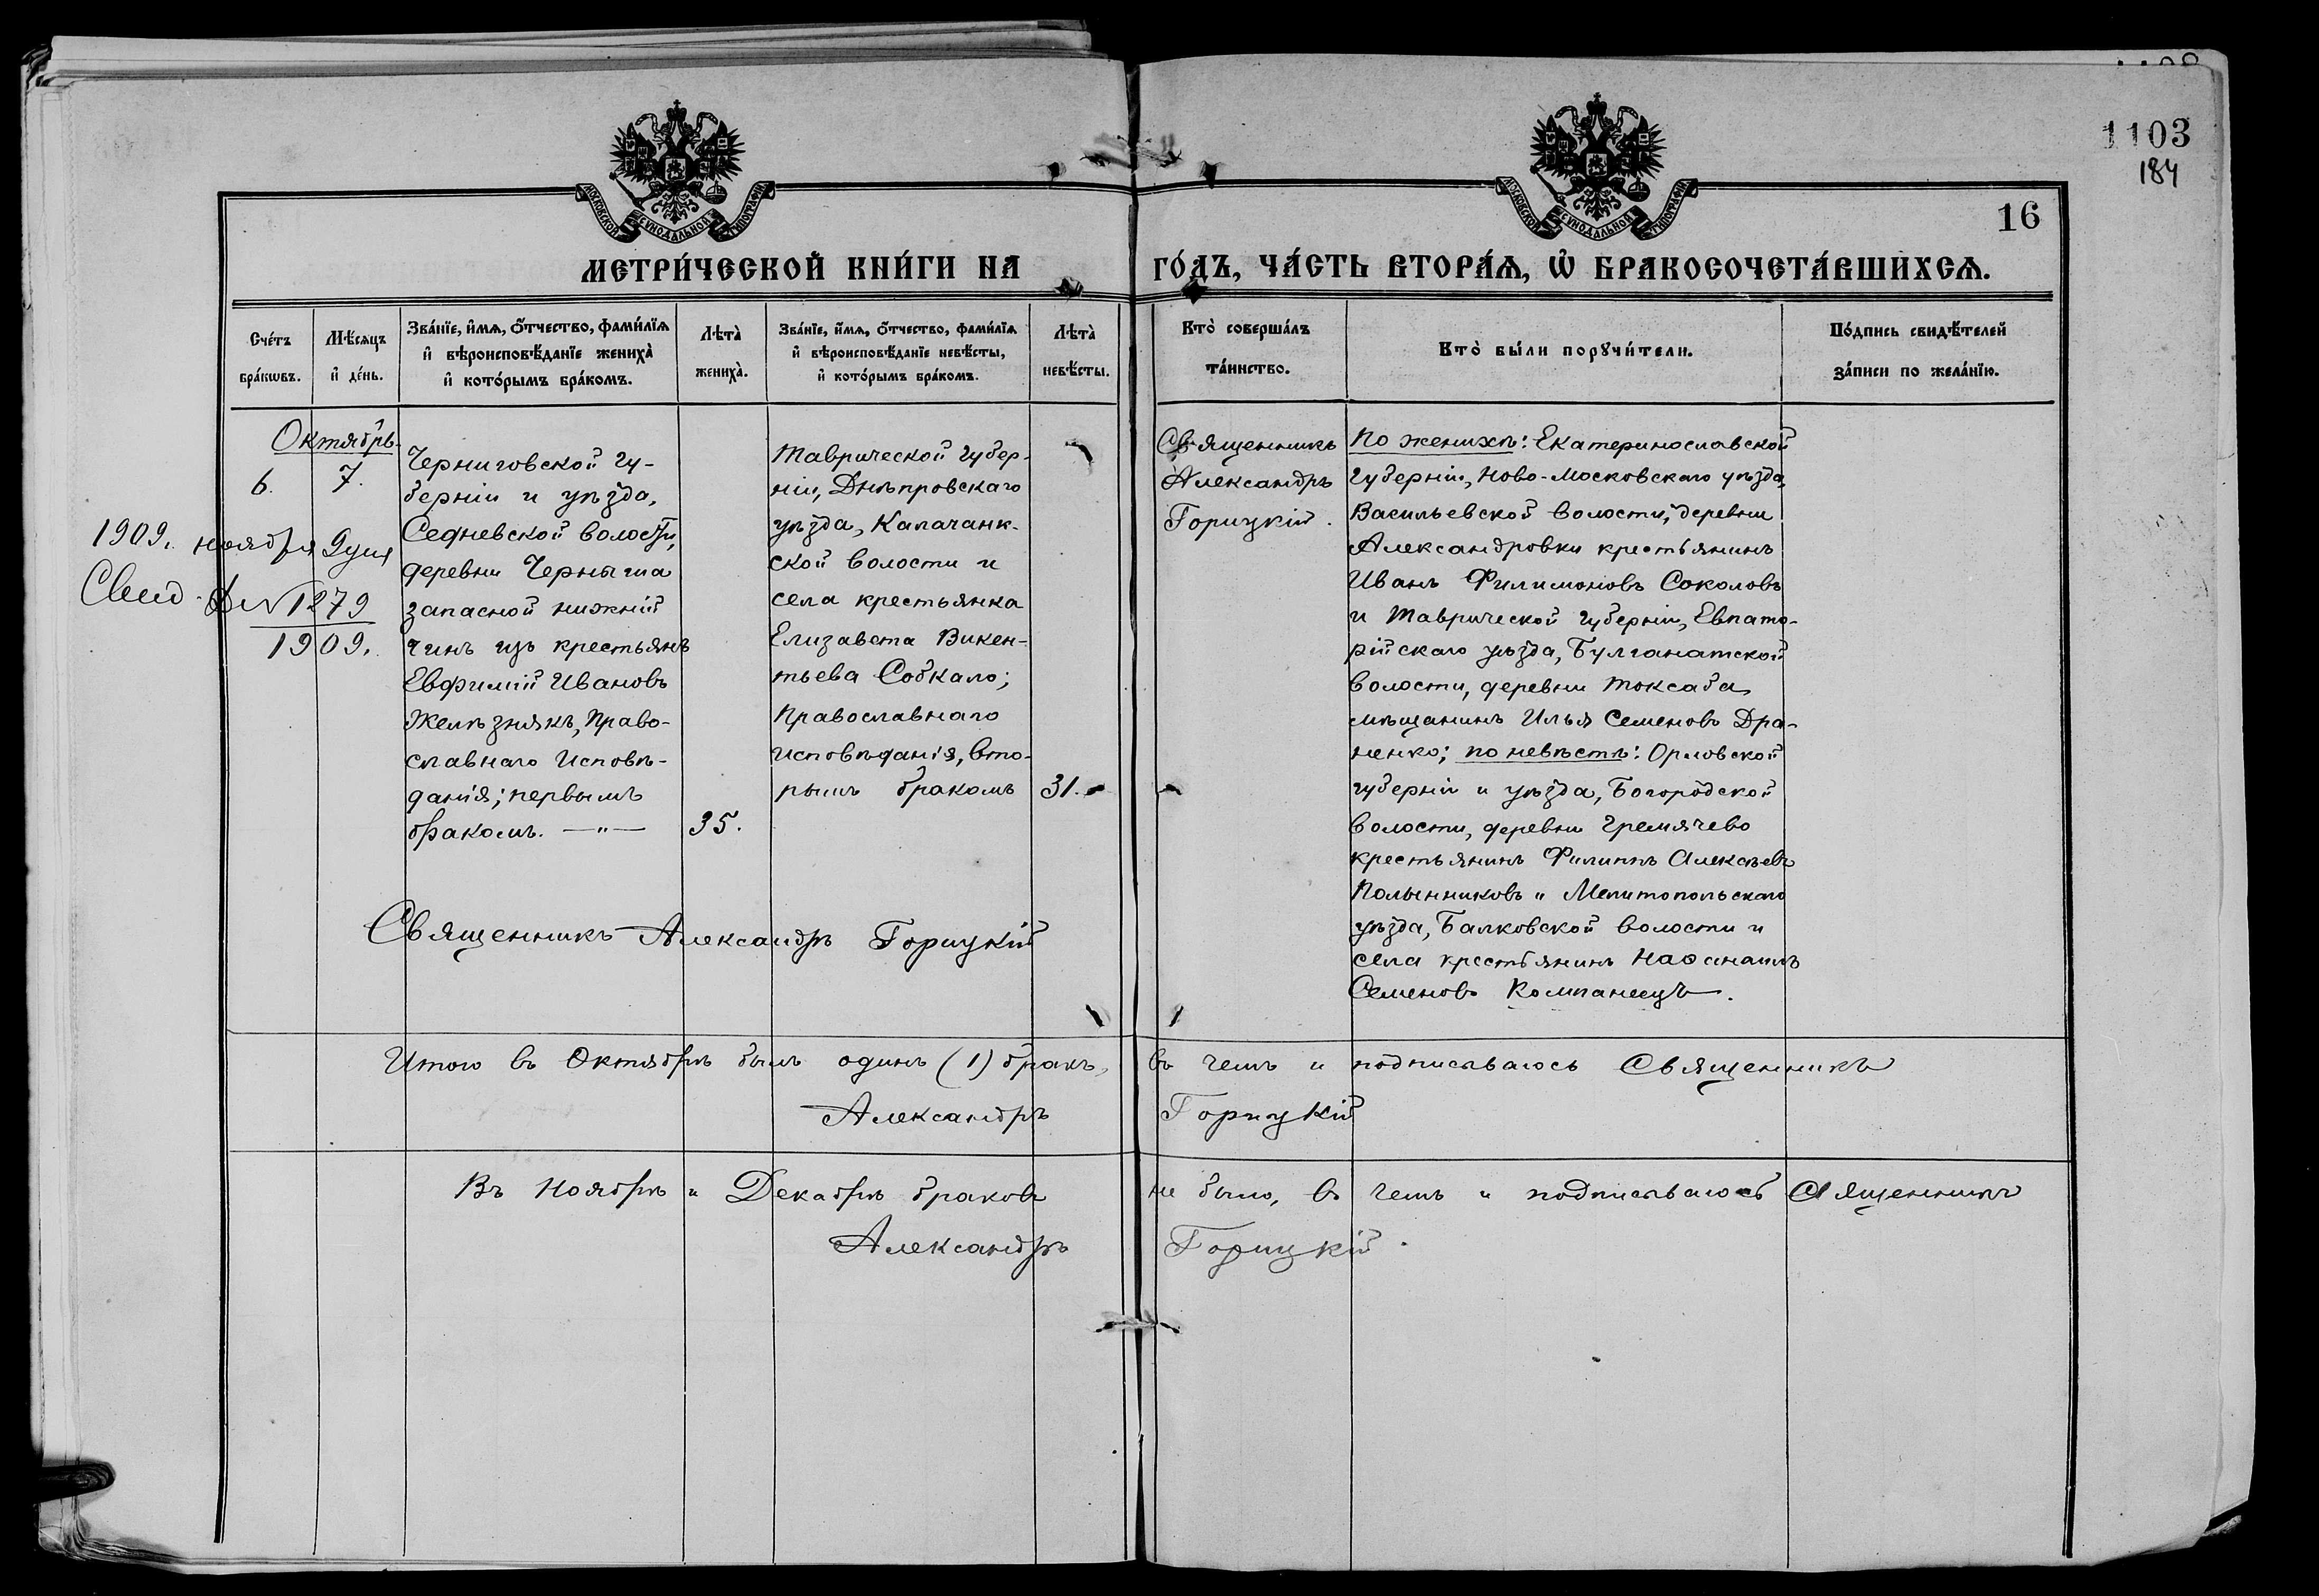 1103
184
16
МОСКОВСКОЙ СУНОДАЛЬНОЙ ТИПОГРАФІИ
МОСКОВСКОЙ СУНОДАЛЬНОЙ ТИПОГРАФІИ
МЕТРИ́ЧЕСКОЙ КНИ́ГИ НА ГО́ДЪ, ЧА́СТЬ ВТОРА́Ѧ, Ѽ БРАКОСОЧЕТА́ВШИХСѦ.
Сче́тъ
бра́кѡвъ.
Мѣ́сѧцъ
и҆ де́нь.
Зва́нїе, и҆́мѧ, ѻ҆́тчество, фами́лїѧ
и҆ вѣроисповѣ́данїе жениха̀
и҆ кото́рымъ бра́комъ.
Лѣ́та̀
жениха̀.
Зва́нїе, и҆́мѧ, ѻ҆́тчество, фами́лїѧ
и҆ вѣроисповѣ́данїе невѣ́сты,
и҆ кото́рымъ бра́комъ.
Лѣ́та̀
невѣ́сты.
Кто̀ соверша́лъ
та́инство.
Кто̀ бы́ли порꙋчи́тели.
По́дпись свидѣ́телей
за́писи по жела́нїю.
Октябрь.
6. 7.
1909. ноября 9 дня
Свид. № 1279
1909.
Черниговской гу-
берніи и уѣзда,
Седневской волости,
деревни Черныша
запасной нижній
чинъ изъ крестьянъ
Евфимій Ивановъ
Желѣзнякъ, Право-
славнаго Исповѣ-
данія; первымъ
бракомъ. —"—
35.
Таврической губер-
ніи, Днѣпровскаго
уѣзда, Каланчанк-
ской волости и
села крестьянка
Елизавета Викен-
тьева Собкало;
Православнаго
исповѣданія, вто-
рымъ бракомъ
31.
Священникъ
Александръ
Горицкій.
По женихѣ: Екатеринославской
губерніи, Ново-Московскаго уѣзда,
Васильевской волости, деревни
Александровки крестьянинъ
Иванъ Филимоновъ Соколовъ
и Таврической губерніи, Евпато-
рійскаго уѣзда, Булганатской
волости, деревни Токсаба,
мѣщанинъ Илья Семеновъ Дра-
ненко; по невѣстѣ: Орловской
губерніи и уѣзда, Богородской
волости, деревни Гремячево
крестьянинъ Филиппъ Алексѣевъ
Полынниковъ и Мелитопольскаго
уѣзда, Балковской волости и
села крестьянинъ Наѳанаилъ
Семеновъ Компанеецъ.
Священникъ Александръ Горицкій
Итого въ Октябрѣ былъ одинъ (1) бракъ, въ чемъ и подписываюсь Священникъ
Александръ Горицкій
Въ Ноябрѣ и Декабрѣ браковъ не было, въ чемъ и подписываюсь Священникъ
Александръ Горицкій.